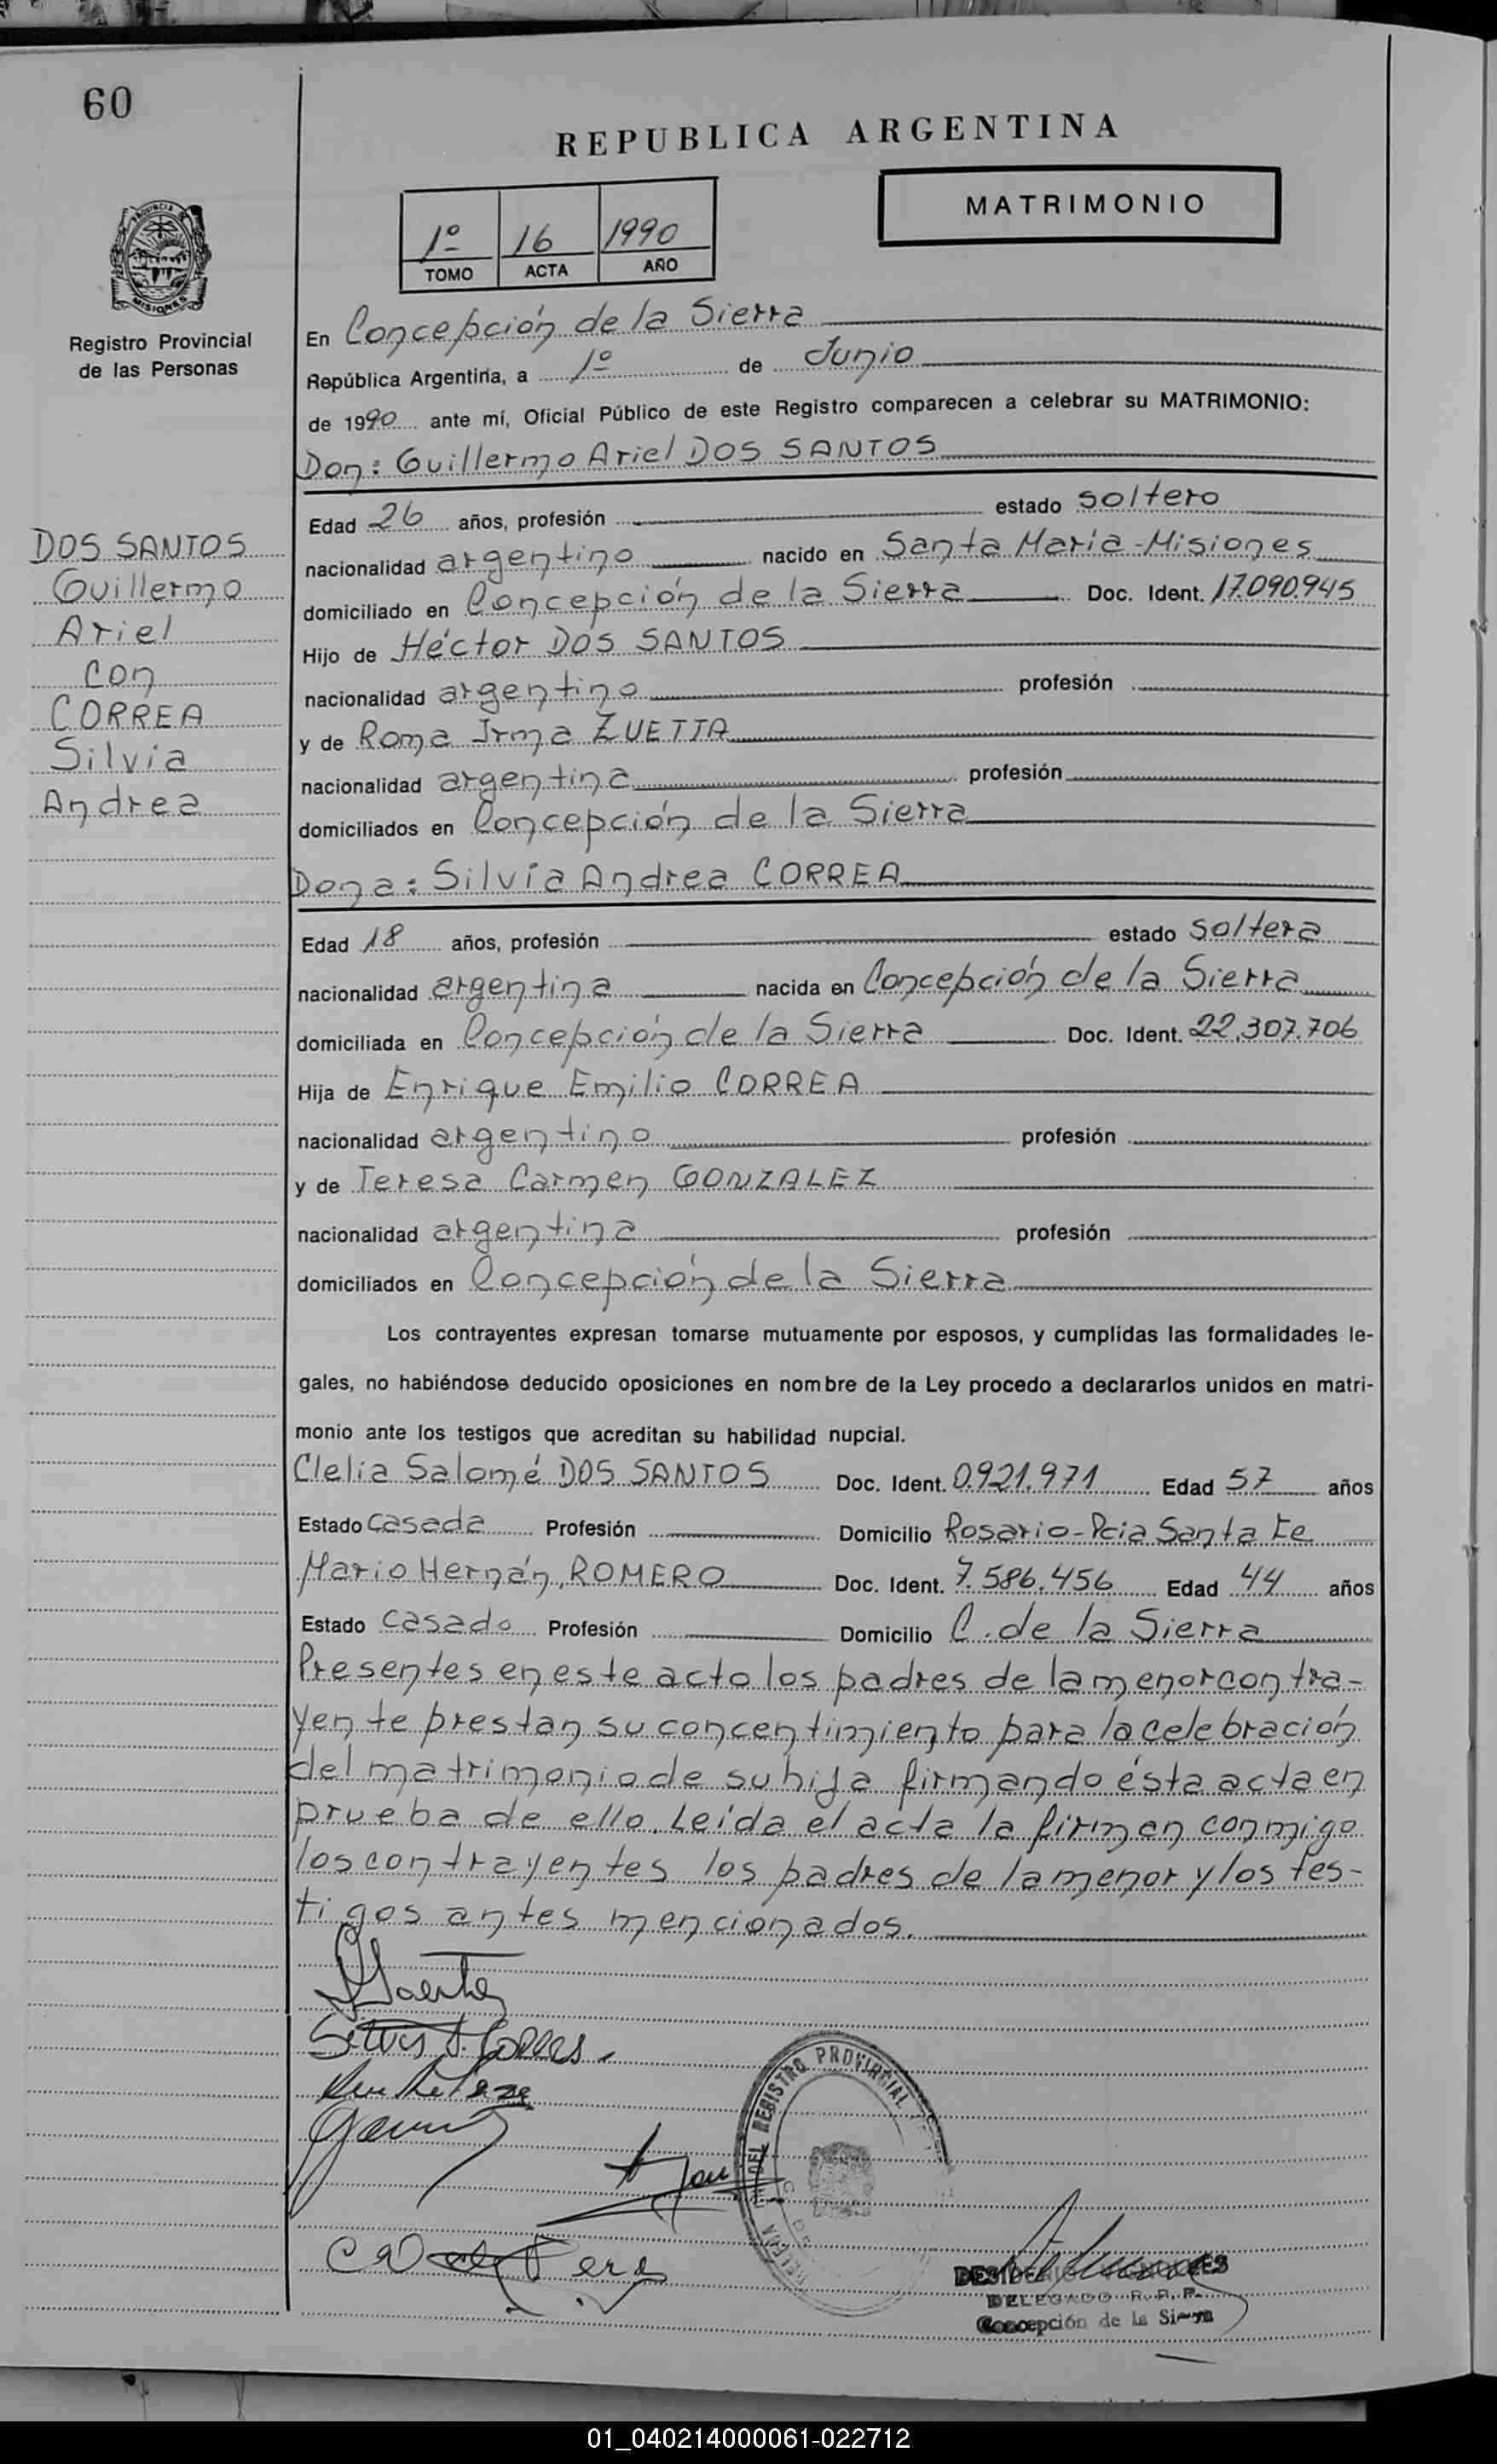 60
REPUBLICA ARGENTINA
MATRIMONIO
1º 16 1990
TOMO ACTA AÑO
PROVINCIA DE
MISIONES
Registro Provincial
de las Personas
En Concepción de la Sierra
República Argentina, a 1º de Junio
de 1990 ante mí, Oficial Público de este Registro comparecen a celebrar su MATRIMONIO:
Don: Guillermo Ariel DOS SANTOS
Edad 26 años, profesión estado soltero
nacionalidad argentino nacido en Santa María-Misiones
domiciliado en Concepción de la Sierra Doc. Ident. 17.090.945
Hijo de Héctor DOS SANTOS
nacionalidad argentino profesión
y de Roma Irma ZUETTA
nacionalidad argentina profesión
domiciliados en Concepción de la Sierra
DOS SANTOS
Guillermo
Ariel
con
CORREA
Silvia
Andrea
Dona: Silvia Andrea CORREA
Edad 18 años, profesión estado soltera
nacionalidad argentina nacida en Concepción de la Sierra
domiciliada en Concepción de la Sierra Doc. Ident. 22.307.706
Hija de Enrique Emilio CORREA
nacionalidad argentino profesión
y de Teresa Carmen GONZALEZ
nacionalidad argentina profesión
domiciliados en Concepción de la Sierra
Los contrayentes expresan tomarse mutuamente por esposos, y cumplidas las formalidades le-
gales, no habiéndose deducido oposiciones en nombre de la Ley procedo a declararlos unidos en matri-
monio ante los testigos que acreditan su habilidad nupcial.
Clelia Salomé DOS SANTOS Doc. Ident. 0.921.971 Edad 57 años
Estado casada Profesión Domicilio Rosario-Pcia Santa Fe
Mario Hernán, ROMERO Doc. Ident. 7.586.456 Edad 44 años
Estado casado Profesión Domicilio C. de la Sierra
Presentes en este acto los padres de la menor contra-
yente prestan su concentimiento para la celebración
del matrimonio de su hija firmando ésta acta en
prueba de ello. Leída el acta la firman conmigo
los contrayentes los padres de la menor y los tes-
tigos antes mencionados.
DEL REGISTRO PROVINCIAL
DELEGADO R. P. P.
Concepción de la Sierra
01_040214000061-022712